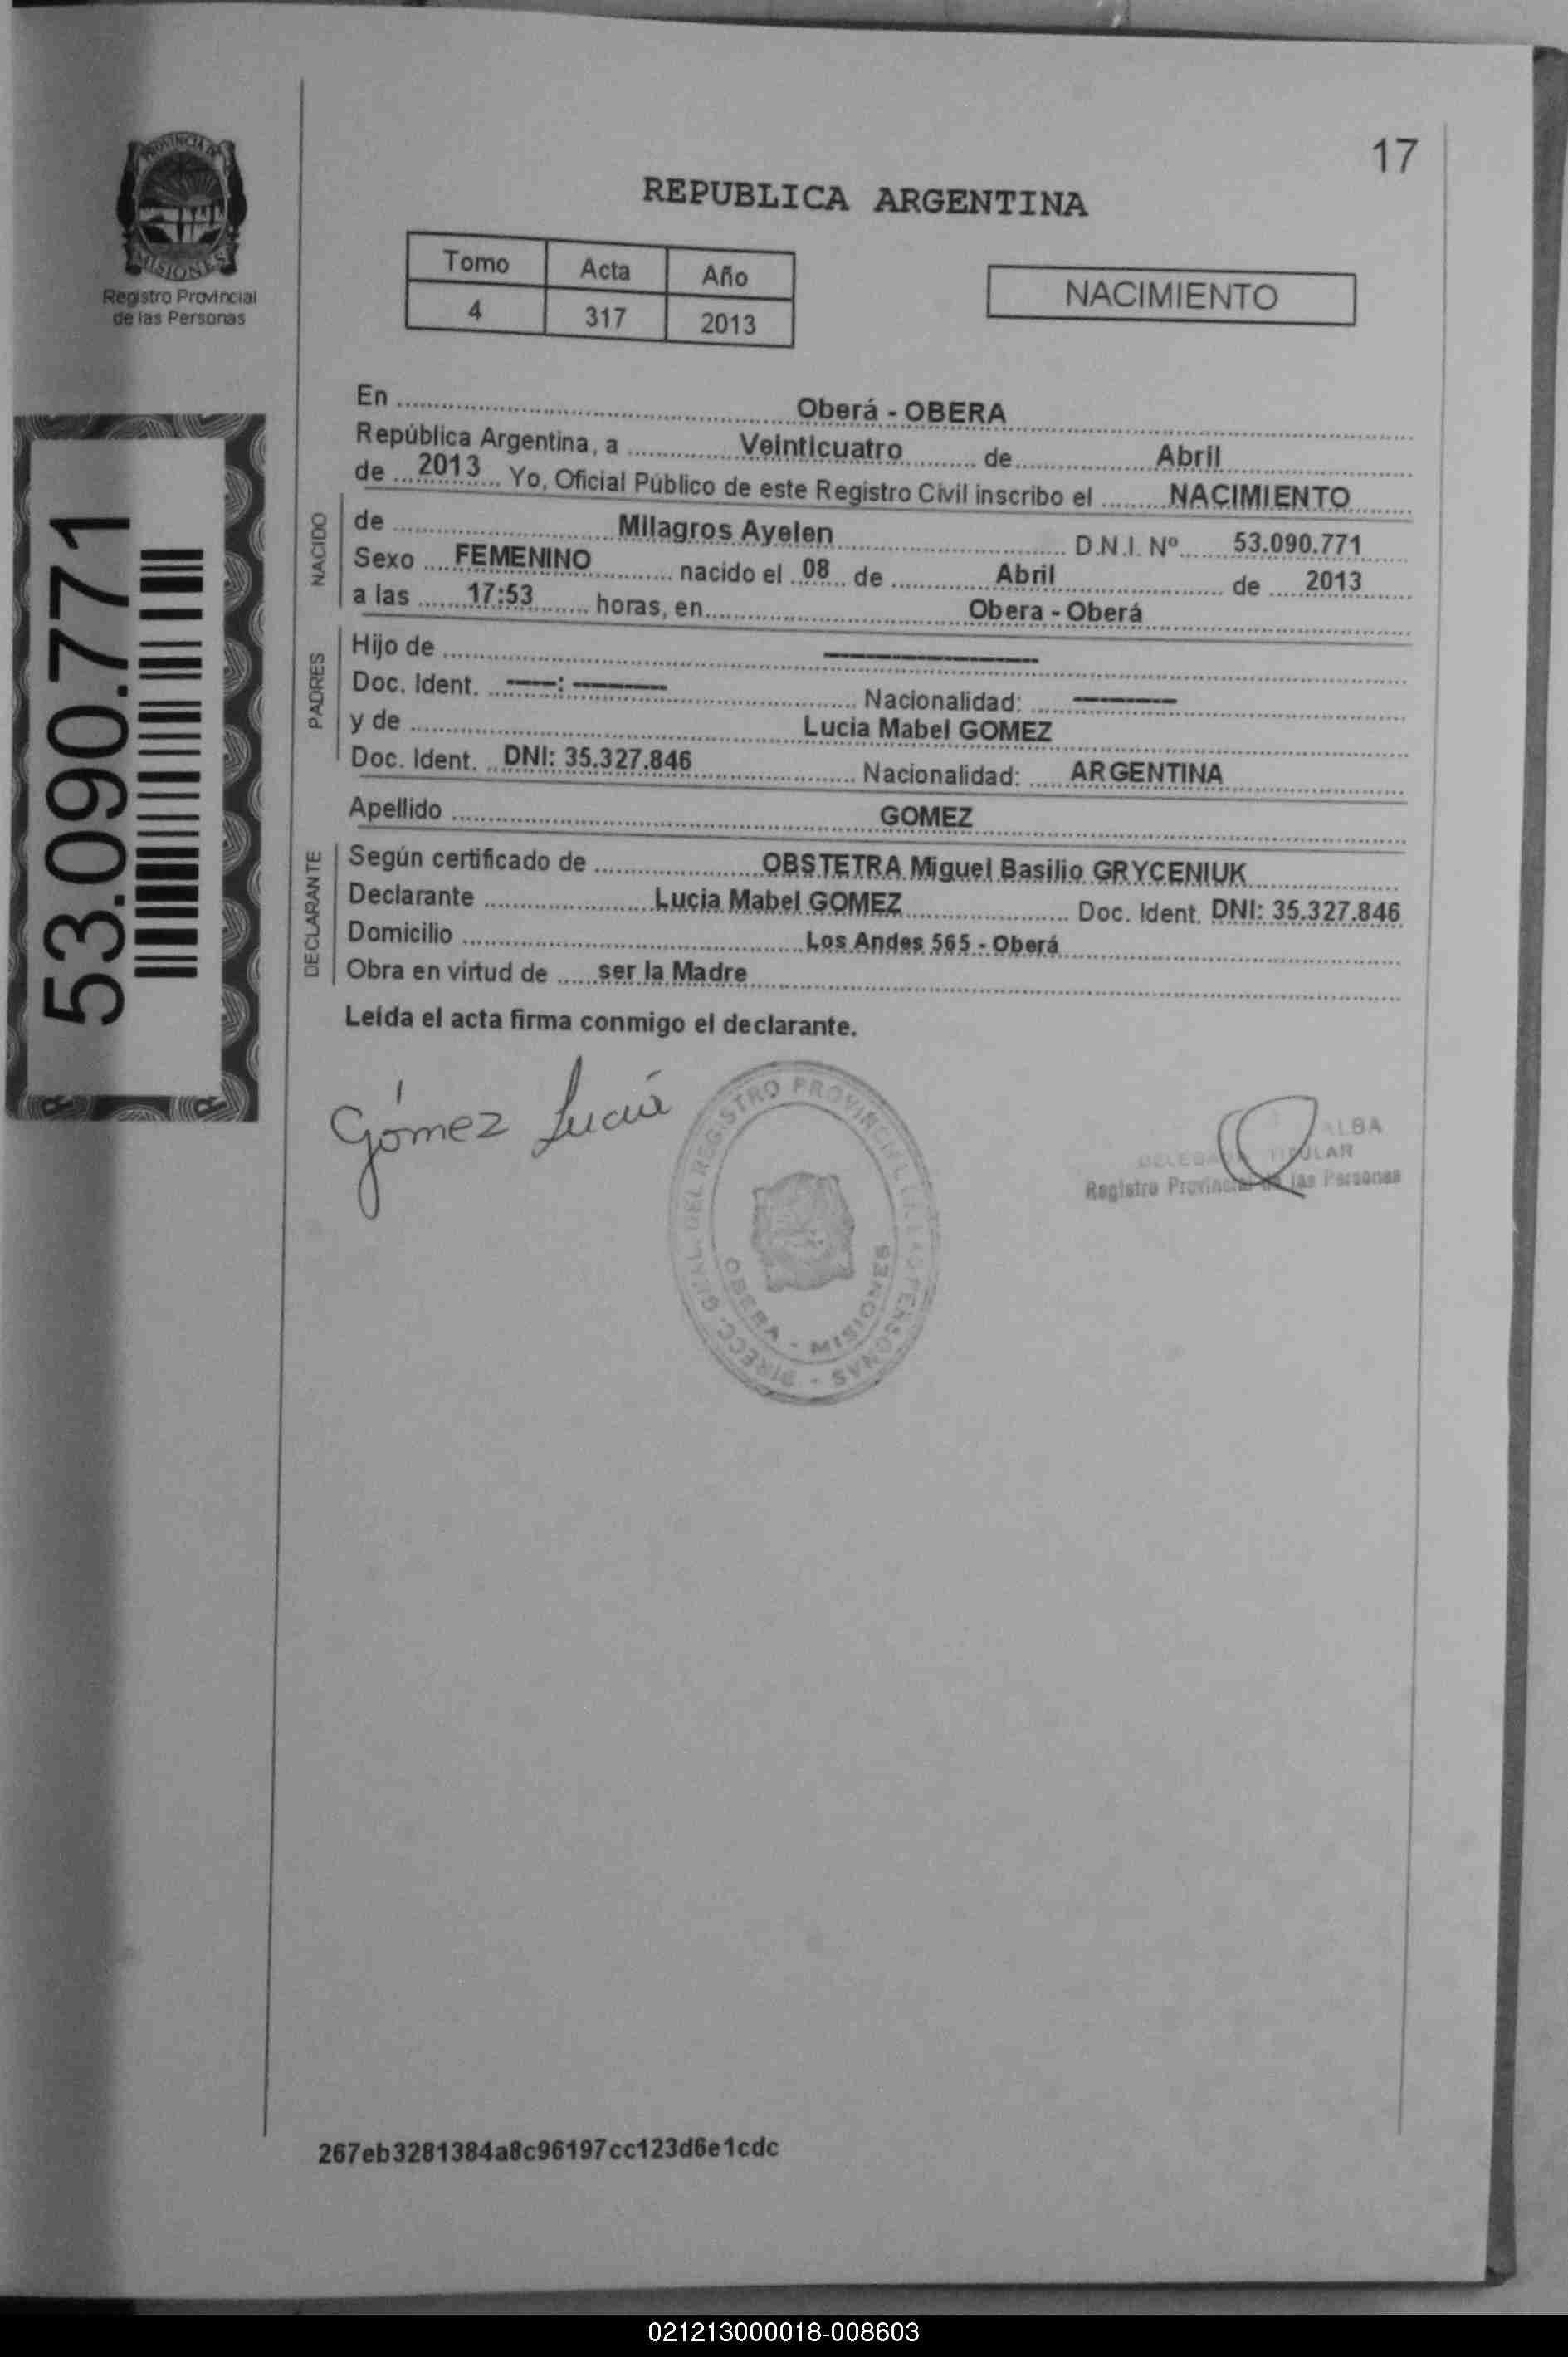 17
PROVINCIA DE
MISIONES
Registro Provincial
de las Personas
REPUBLICA ARGENTINA
Tomo Acta Año
4 317 2013
NACIMIENTO
53.090.771
En Oberá - OBERA
República Argentina, a Veinticuatro de Abril
de 2013 Yo, Oficial Público de este Registro Civil inscribo el NACIMIENTO
NACIDO
de Milagros Ayelen D.N.I. Nº 53.090.771
Sexo FEMENINO nacido el 08 de Abril de 2013
a las 17:53 horas, en Obera - Oberá
PADRES
Hijo de ----------
Doc. Ident. ----: -------- Nacionalidad: --------
y de Lucia Mabel GOMEZ
Doc. Ident. DNI: 35.327.846 Nacionalidad: ARGENTINA
Apellido GOMEZ
DECLARANTE
Según certificado de OBSTETRA Miguel Basilio GRYCENIUK
Declarante Lucia Mabel GOMEZ Doc. Ident. DNI: 35.327.846
Domicilio Los Andes 565 - Oberá
Obra en virtud de ser la Madre
Leída el acta firma conmigo el declarante.
Gómez Lucia
DIRECC. GRAL. DEL REGISTRO PROVINCIAL DE LAS PERSONAS -
OBERA - MISIONES
TITULAR
Registro Provincial de las Personas
267eb3281384a8c96197cc123d6e1cdc
021213000018-008603